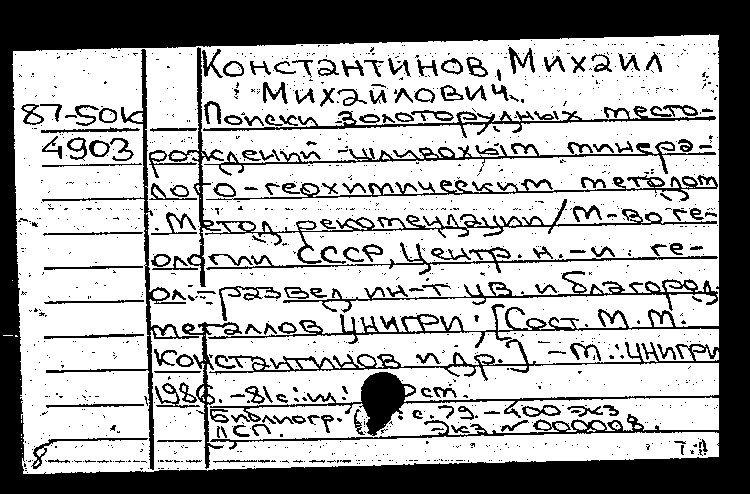 Константинов, Михаил
Михайлович.
87-50к Поиски золоторудных место-
4903 рождений шлиховым минера-
лого-геохимическим методом
: Метод. рекомендации / М-во ге-
ологии СССР, Центр. н.-и. ге-
ол.-развед. ин-т цв. и благород.
металлов ЦНИГРИ; [Сост. М. М.
Константинов и др.]. - М.: ЦНИГРИ
1986. - 81 с.: ил.
Библиогр. : с. 79. - 400 экз
ДСП. Экз. № 000008.
8